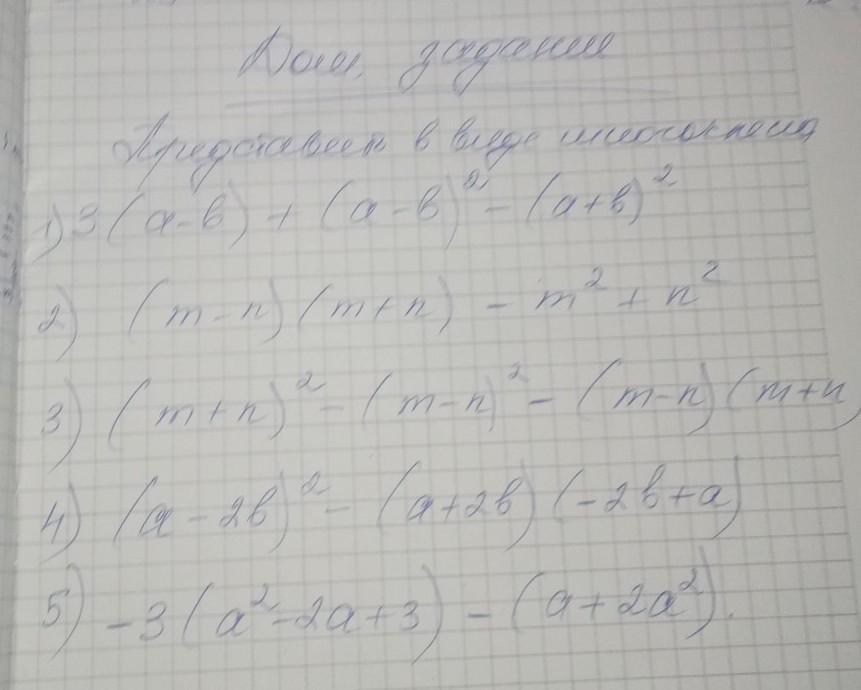 Дом. задание
Представить в виде многочлена
1) 3(a-b) + (a-b)² - (a+b)²
2) (m-n)(m+n) - m² + n²
3) (m+n)² - (m-n)² - (m-n)(m+n)
4) (a-2b)² - (a+2b)(-2b+a)
5) -3(a²-2a+3) - (a+2a²).